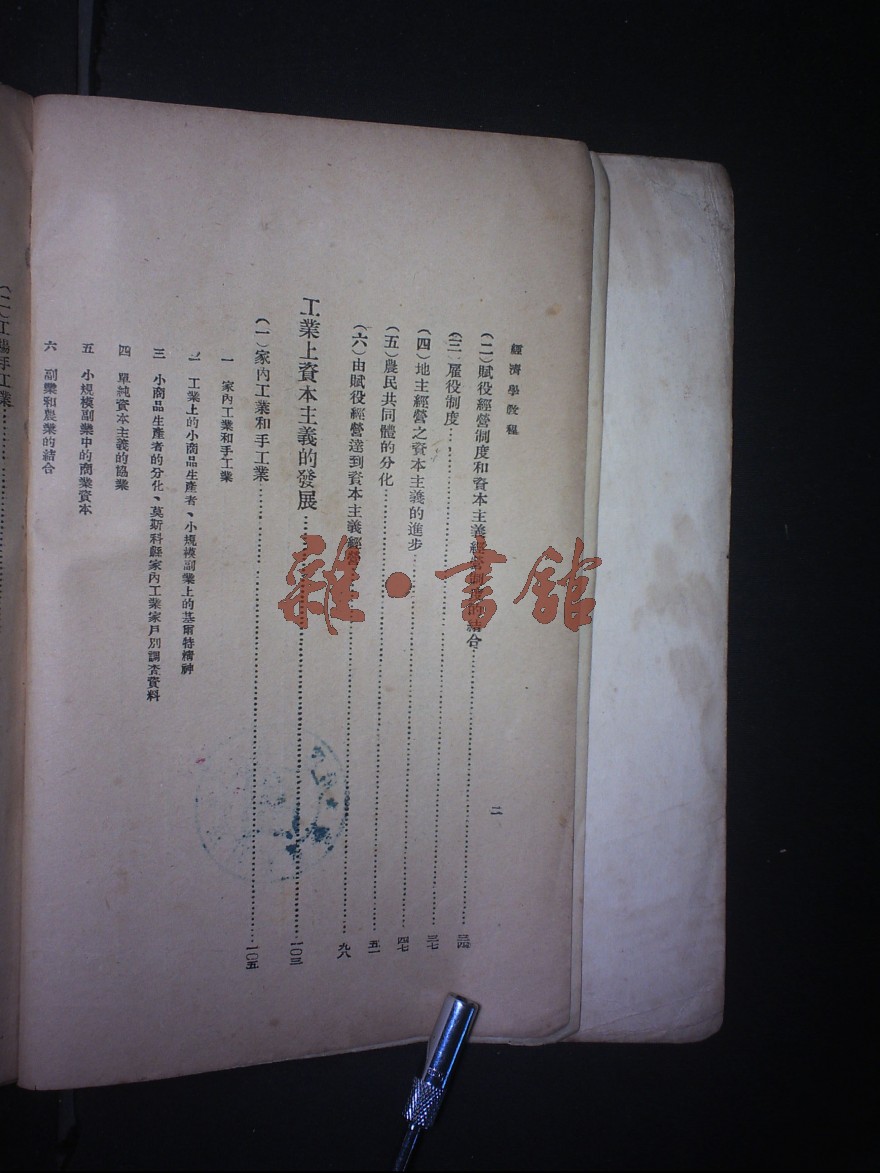 經濟學敎程
二
(二)賦役經營制度和資本主義經營制度的結合……三四
(三)雇役制度……三七
(四)地主經營之資本主義的進步……四七
(五)農民共同體的分化……五一
(六)由賦役經營達到資本主義經營……九八
工業上資本主義的發展……一〇三
(一)家內工業和手工業……一〇五
一 家內工業和手工業
二 工業上的小商品生產者、小規模副業上的基爾特精神
三 小商品生產者的分化、莫斯科縣家內工業家戶別調查資料
四 單純資本主義的協業
五 小規模副業中的商業資本
六 副業和農業的結合
(二)工場手工業……
雜·書館